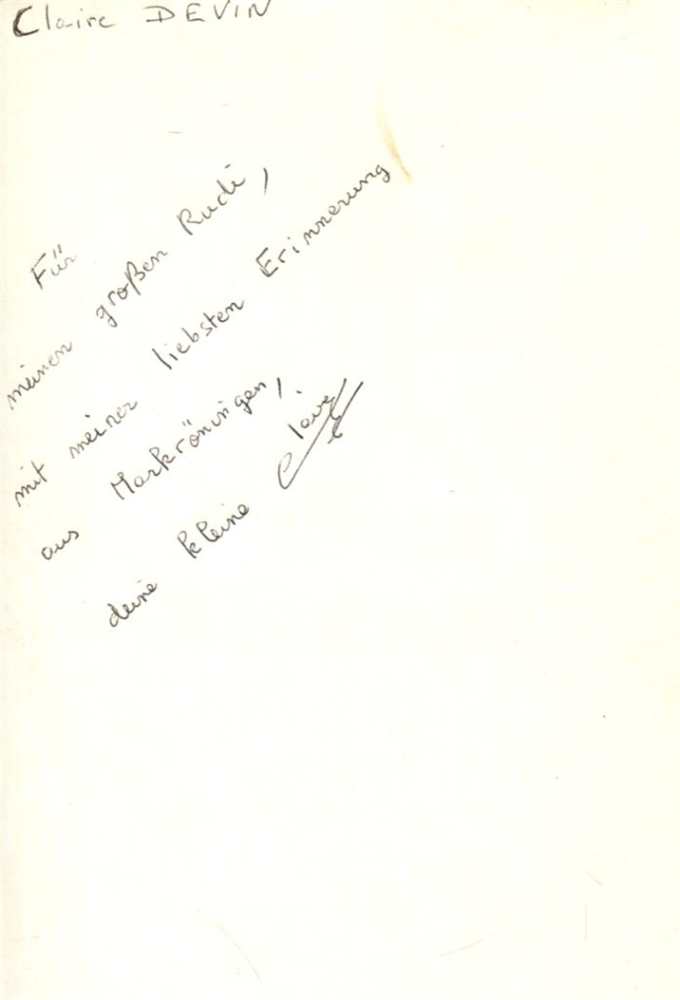 Claire DEVIN
Für
meinen großen Rudi,
mit meiner liebsten Erinnerung
aus Markröningen,
deine kleine Claire